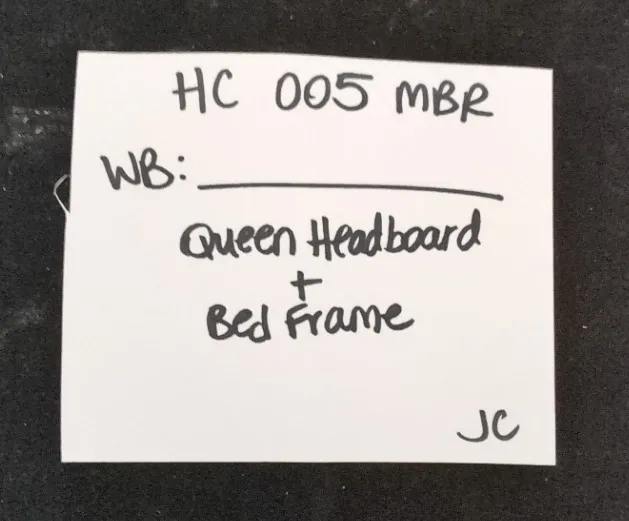 HC 005 MBR
WB: ____________
Queen Headboard
+
Bed Frame
JC